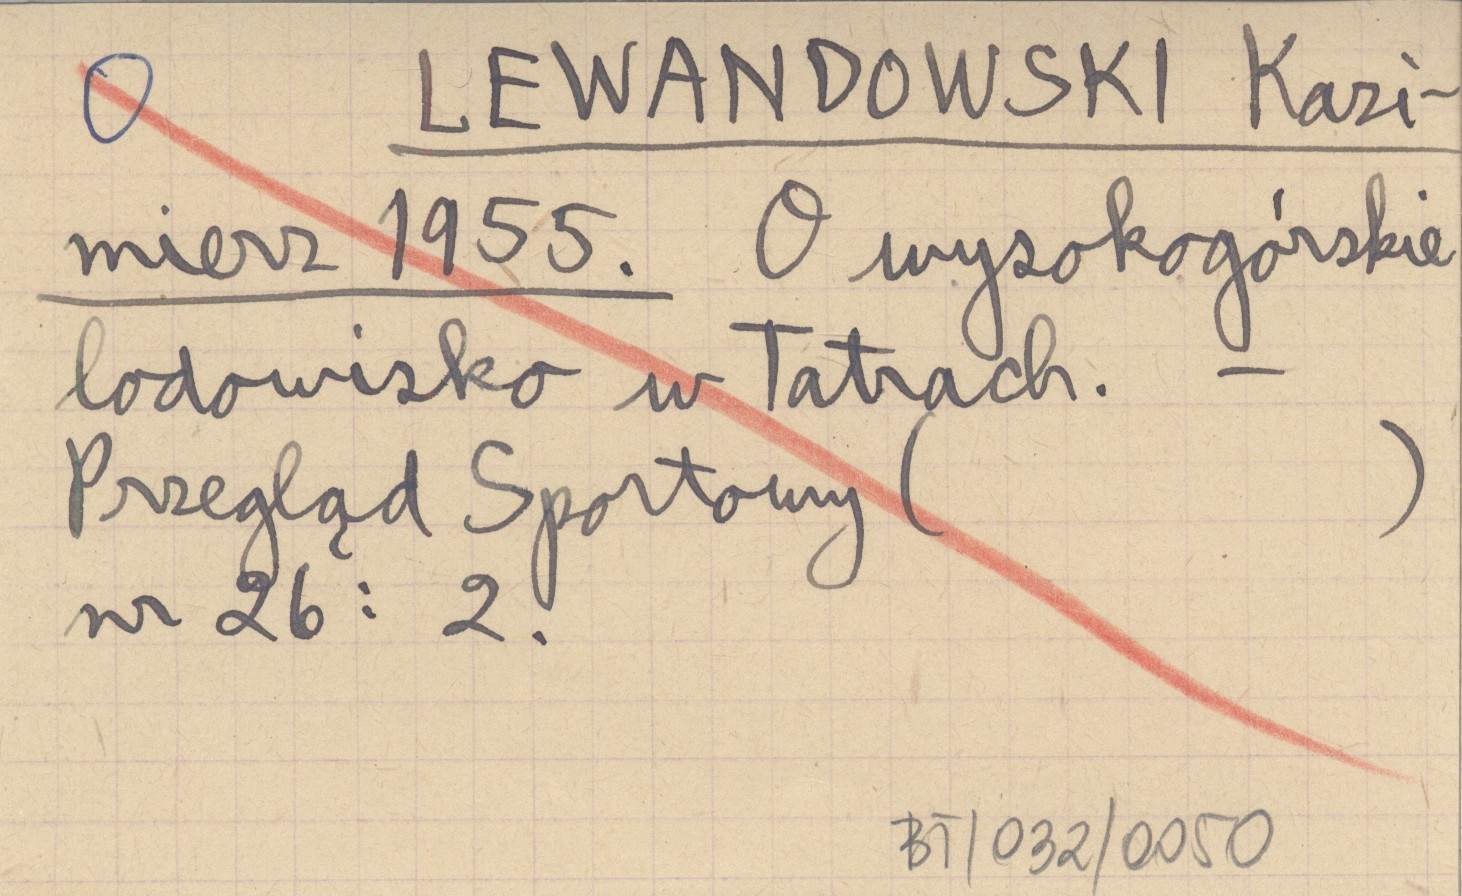 O LEWANDOWSKI Kazi-
mierz 1955. O wysokogórskie
lodowisko w Tatrach. —
Przegląd Sportowy ( )
nr 26: 2.
BT/032/0050